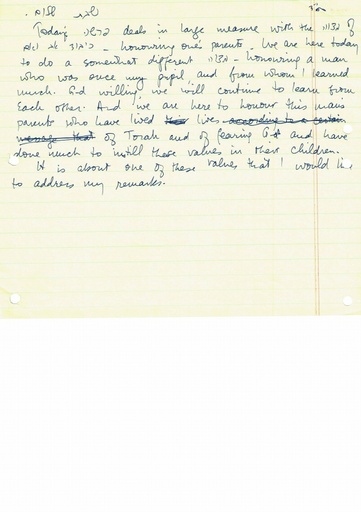 ב"ה
שבת שלום.
Today's פרשה deals in large measure with the מצוה of
כיבוד אב ואם - honouring one's parents. We are here today
to do a somewhat different מצוה - honouring a man
who was once my pupil, and from whom I learned
much. G-d willing we will continue to learn from
each other. And we are here to honour this man's
parents who have lived their lives according to a certain
message that of Torah and of fearing G-d and have
done much to instill these values in their children.
It is about one of these values that I would like
to address my remarks.